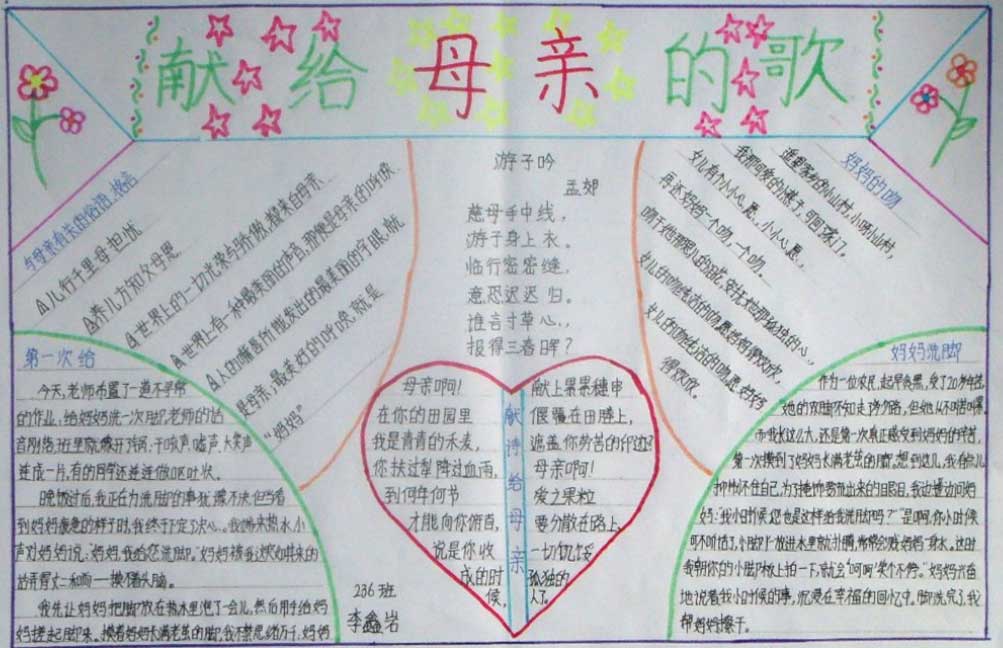 献给母亲的歌
与母亲有关的俗语、格言
△儿行千里母担忧
△养儿方知父母恩
△世界上的一切光荣与骄傲,都来自母亲
△世界上有一种最美丽的声音,那便是母亲的呼唤
△人的嘴唇所能发出的最美丽的字眼,就
是母亲,最美好的呼唤,就是
“妈妈”
游子吟
孟郊
慈母手中线,
游子身上衣。
临行密密缝,
意恐迟迟归。
谁言寸草心,
报得三春晖?
妈妈的吻
遥远的小山村,小呀小山村,
我那可爱的小燕子,可回了家门,
女儿有个小小心愿,小小心愿,
再还妈妈一个吻,一个吻。
吻干她那
的泪花,安抚她那孤独的心,
女儿的吻
女儿的吻
得欢欣。
第一次给
今天,老师布置了一道不寻常
的作业,给妈妈洗一次脚。老师的话
音刚落,班里就像开了锅,
嘘声、大笑声
连成一片,有的同学还连连做呕吐状。
晚饭过后,我正在为洗脚的事犹豫不决,但当看
到妈妈疲惫的样子时,我终于下定了决心。我端来热水,小
声对妈妈说:“妈妈,我给您洗脚。”妈妈被我这突如其来的
话弄得丈二和尚——摸不着头脑。
我先让妈妈把脚放在热水里泡了一会儿,然后用手给妈
妈搓起脚来。摸着妈妈长满老茧的脚,我不禁思绪万千:妈妈
母亲啊!
在你的田园里
我是青青的禾麦,
你扶过犁 降过血雨,
到何年何节
才能向你俯首,
说是你收
成的时
候,
献诗给母亲
献上果果穗串
偃覆在田塍上,
遮盖你劳苦的
母亲啊!
爱之果粒
要分散在路上,
一切饥馁
孤独的
人了。
286班
李鑫岩
妈妈洗脚
作为一位农民,起早贪黑,受了20多年苦,
她的双脚不知走了多少路,但她从不叫苦叫累。
而我长这么大,还是第一次真正感受到妈妈的辛苦,
第一次摸到了妈妈长满老茧的脚。想到这儿,我有些儿
抑制不住自己,为了掩饰要流出来的眼泪,我边
边问妈
妈:“我小时候您也是这样给我洗脚吗?”“是啊,你小时候
可不听话了,小脚丫一放进水里就扑腾,常常会溅妈妈一身水。这时
我朝你的小脚板上拍一下,就会‘呵呵’笑个不停。”妈妈兴奋
地说着我小时候的事,沉浸在幸福的回忆中。脚洗完了,我
帮妈妈擦干。